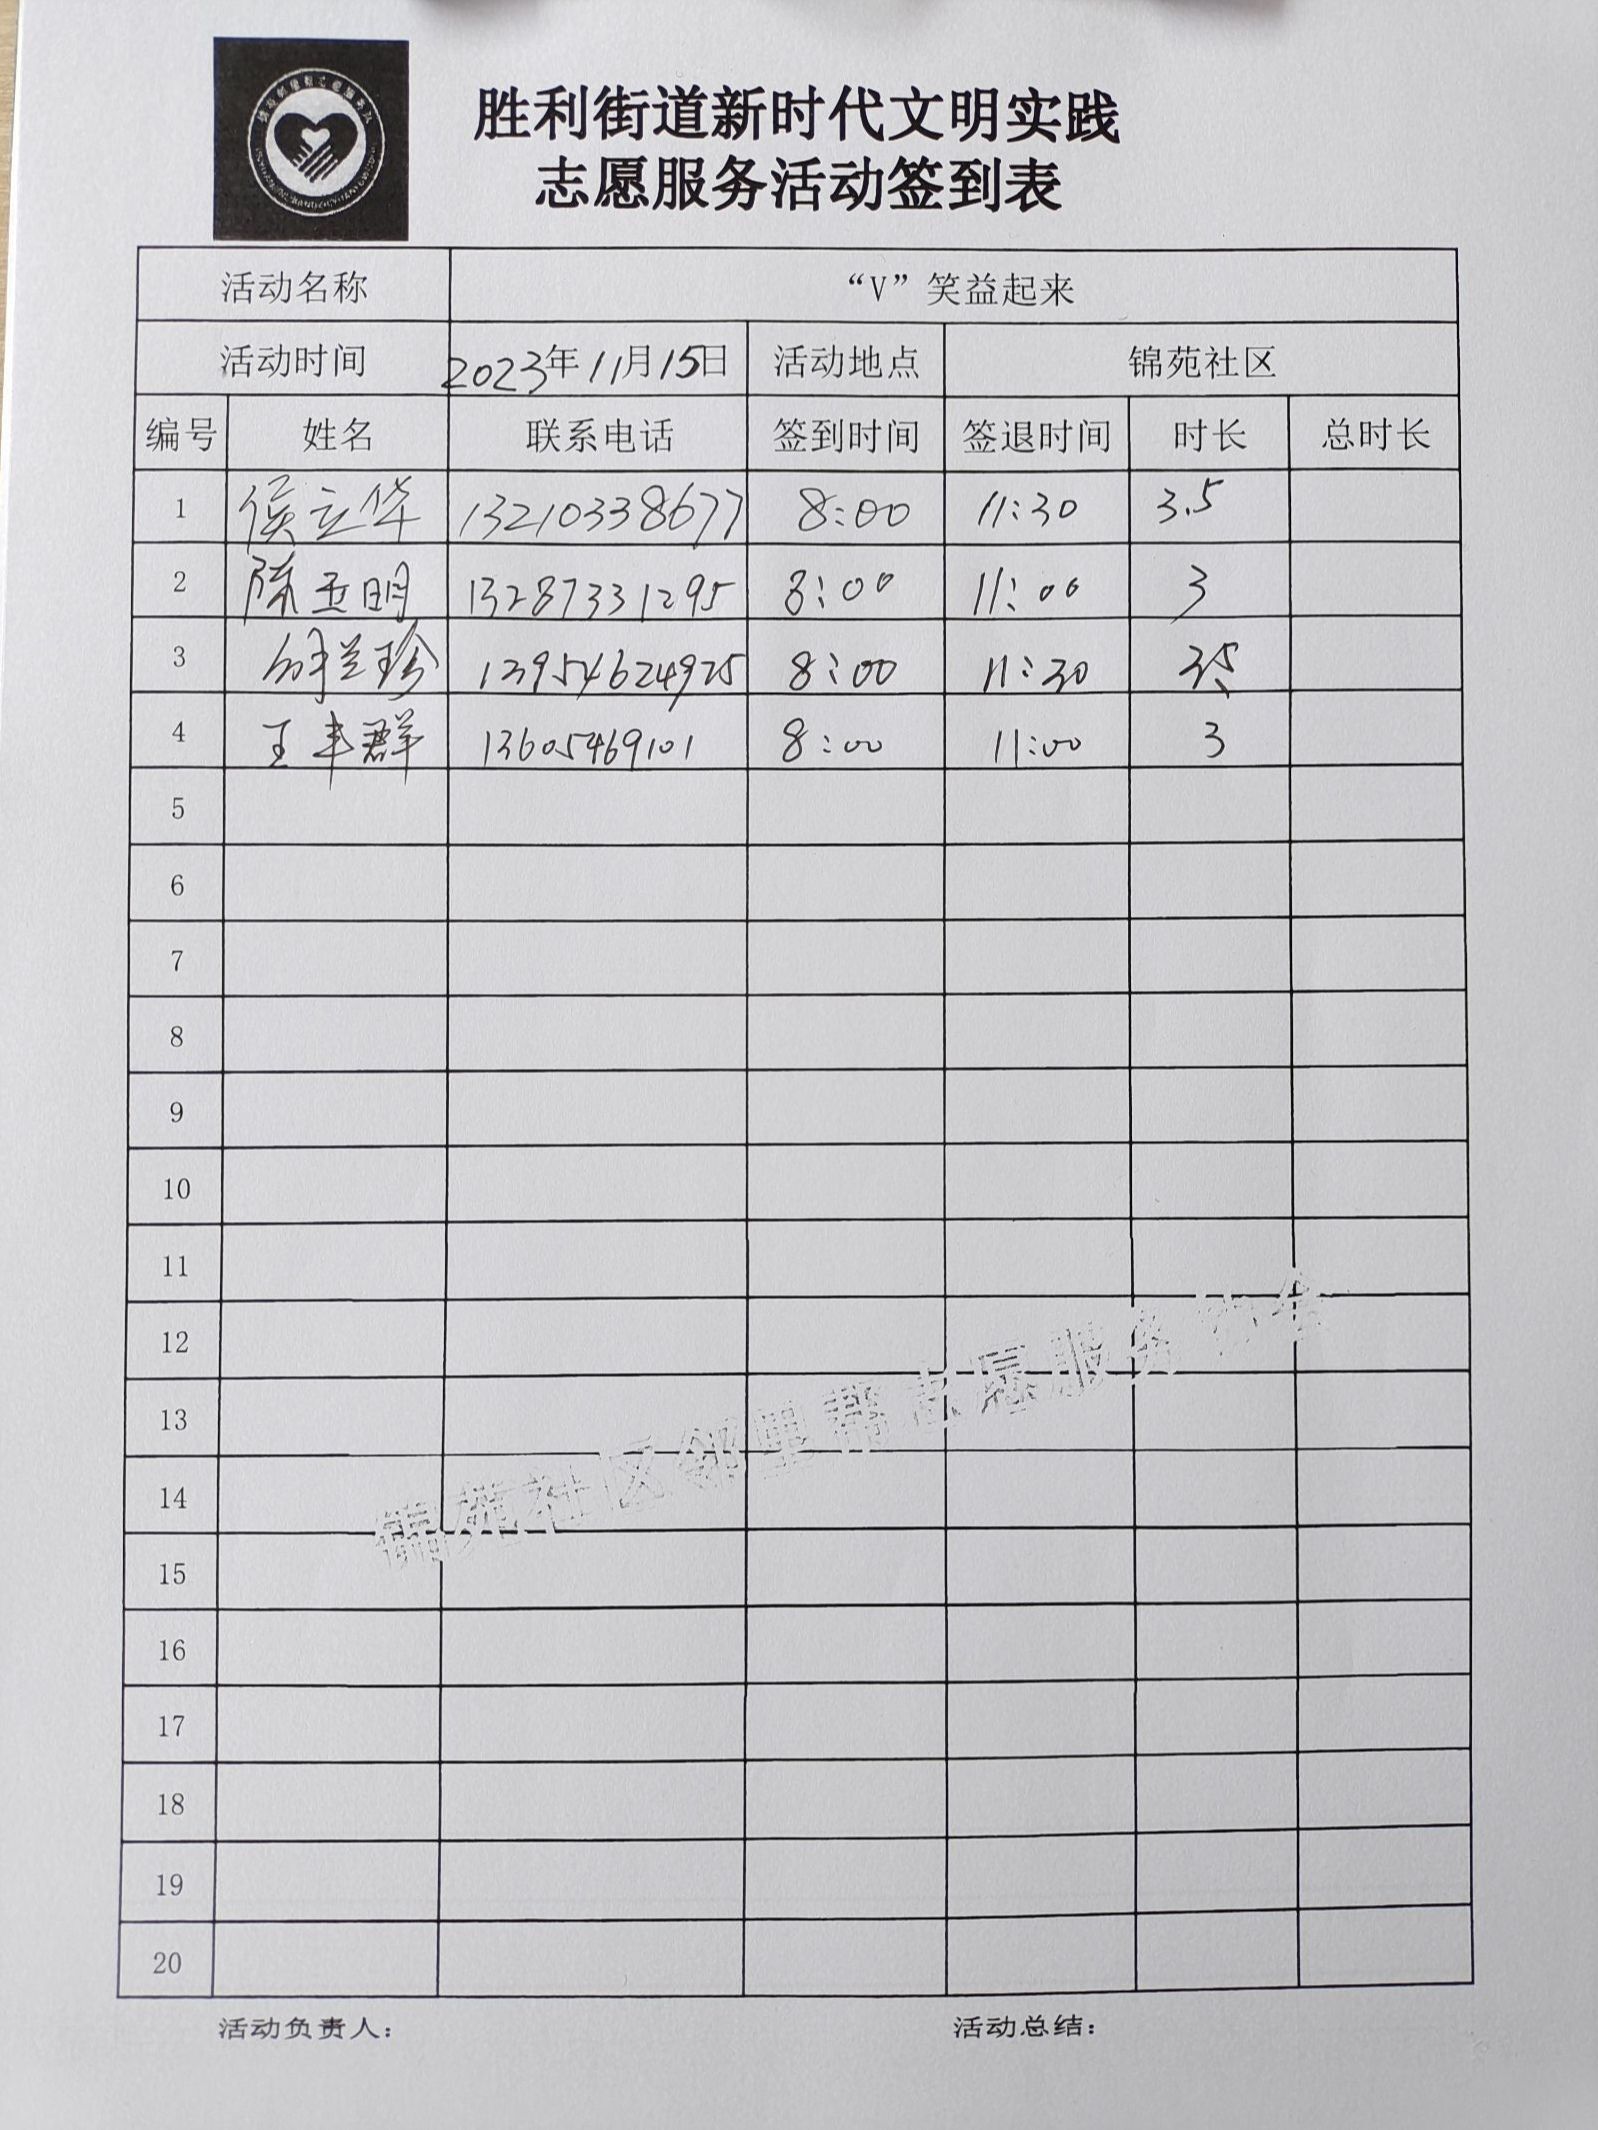 胜利街道新时代文明实践
志愿服务活动签到表
活动名称 “V”笑益起来
活动时间 2023年11月15日 活动地点 锦苑社区
编号 姓名 联系电话 签到时间 签退时间 时长 总时长
1 侯立华 13210338677 8:00 11:30 3.5
2 陈亚明 13287331295 8:00 11:00 3
3 兰珍 13954624925 8:00 11:30 3.5
4 王丰群 13605469101 8:00 11:00 3
5
6
7
8
9
10
11
12
13
14
15
16
17
18
19
20
锦苑社区邻里帮志愿服务协会
活动负责人： 活动总结：